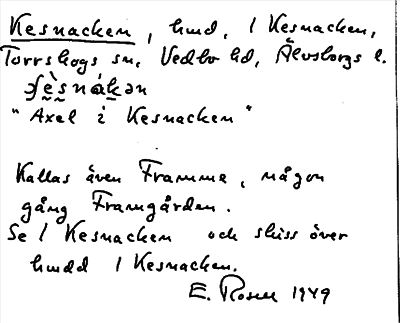 Kesnacken, hmd, 1 Kesnacken,
Torrskogs sn, Vedbo hd, Älvsborgs l.
"Axel i Kesnacken"
Kallas även Framme, någon
gång Framgården.
Se 1 Kesnacken och skiss över
hmdd 1 Kesnacken.
E. Rosell 1949